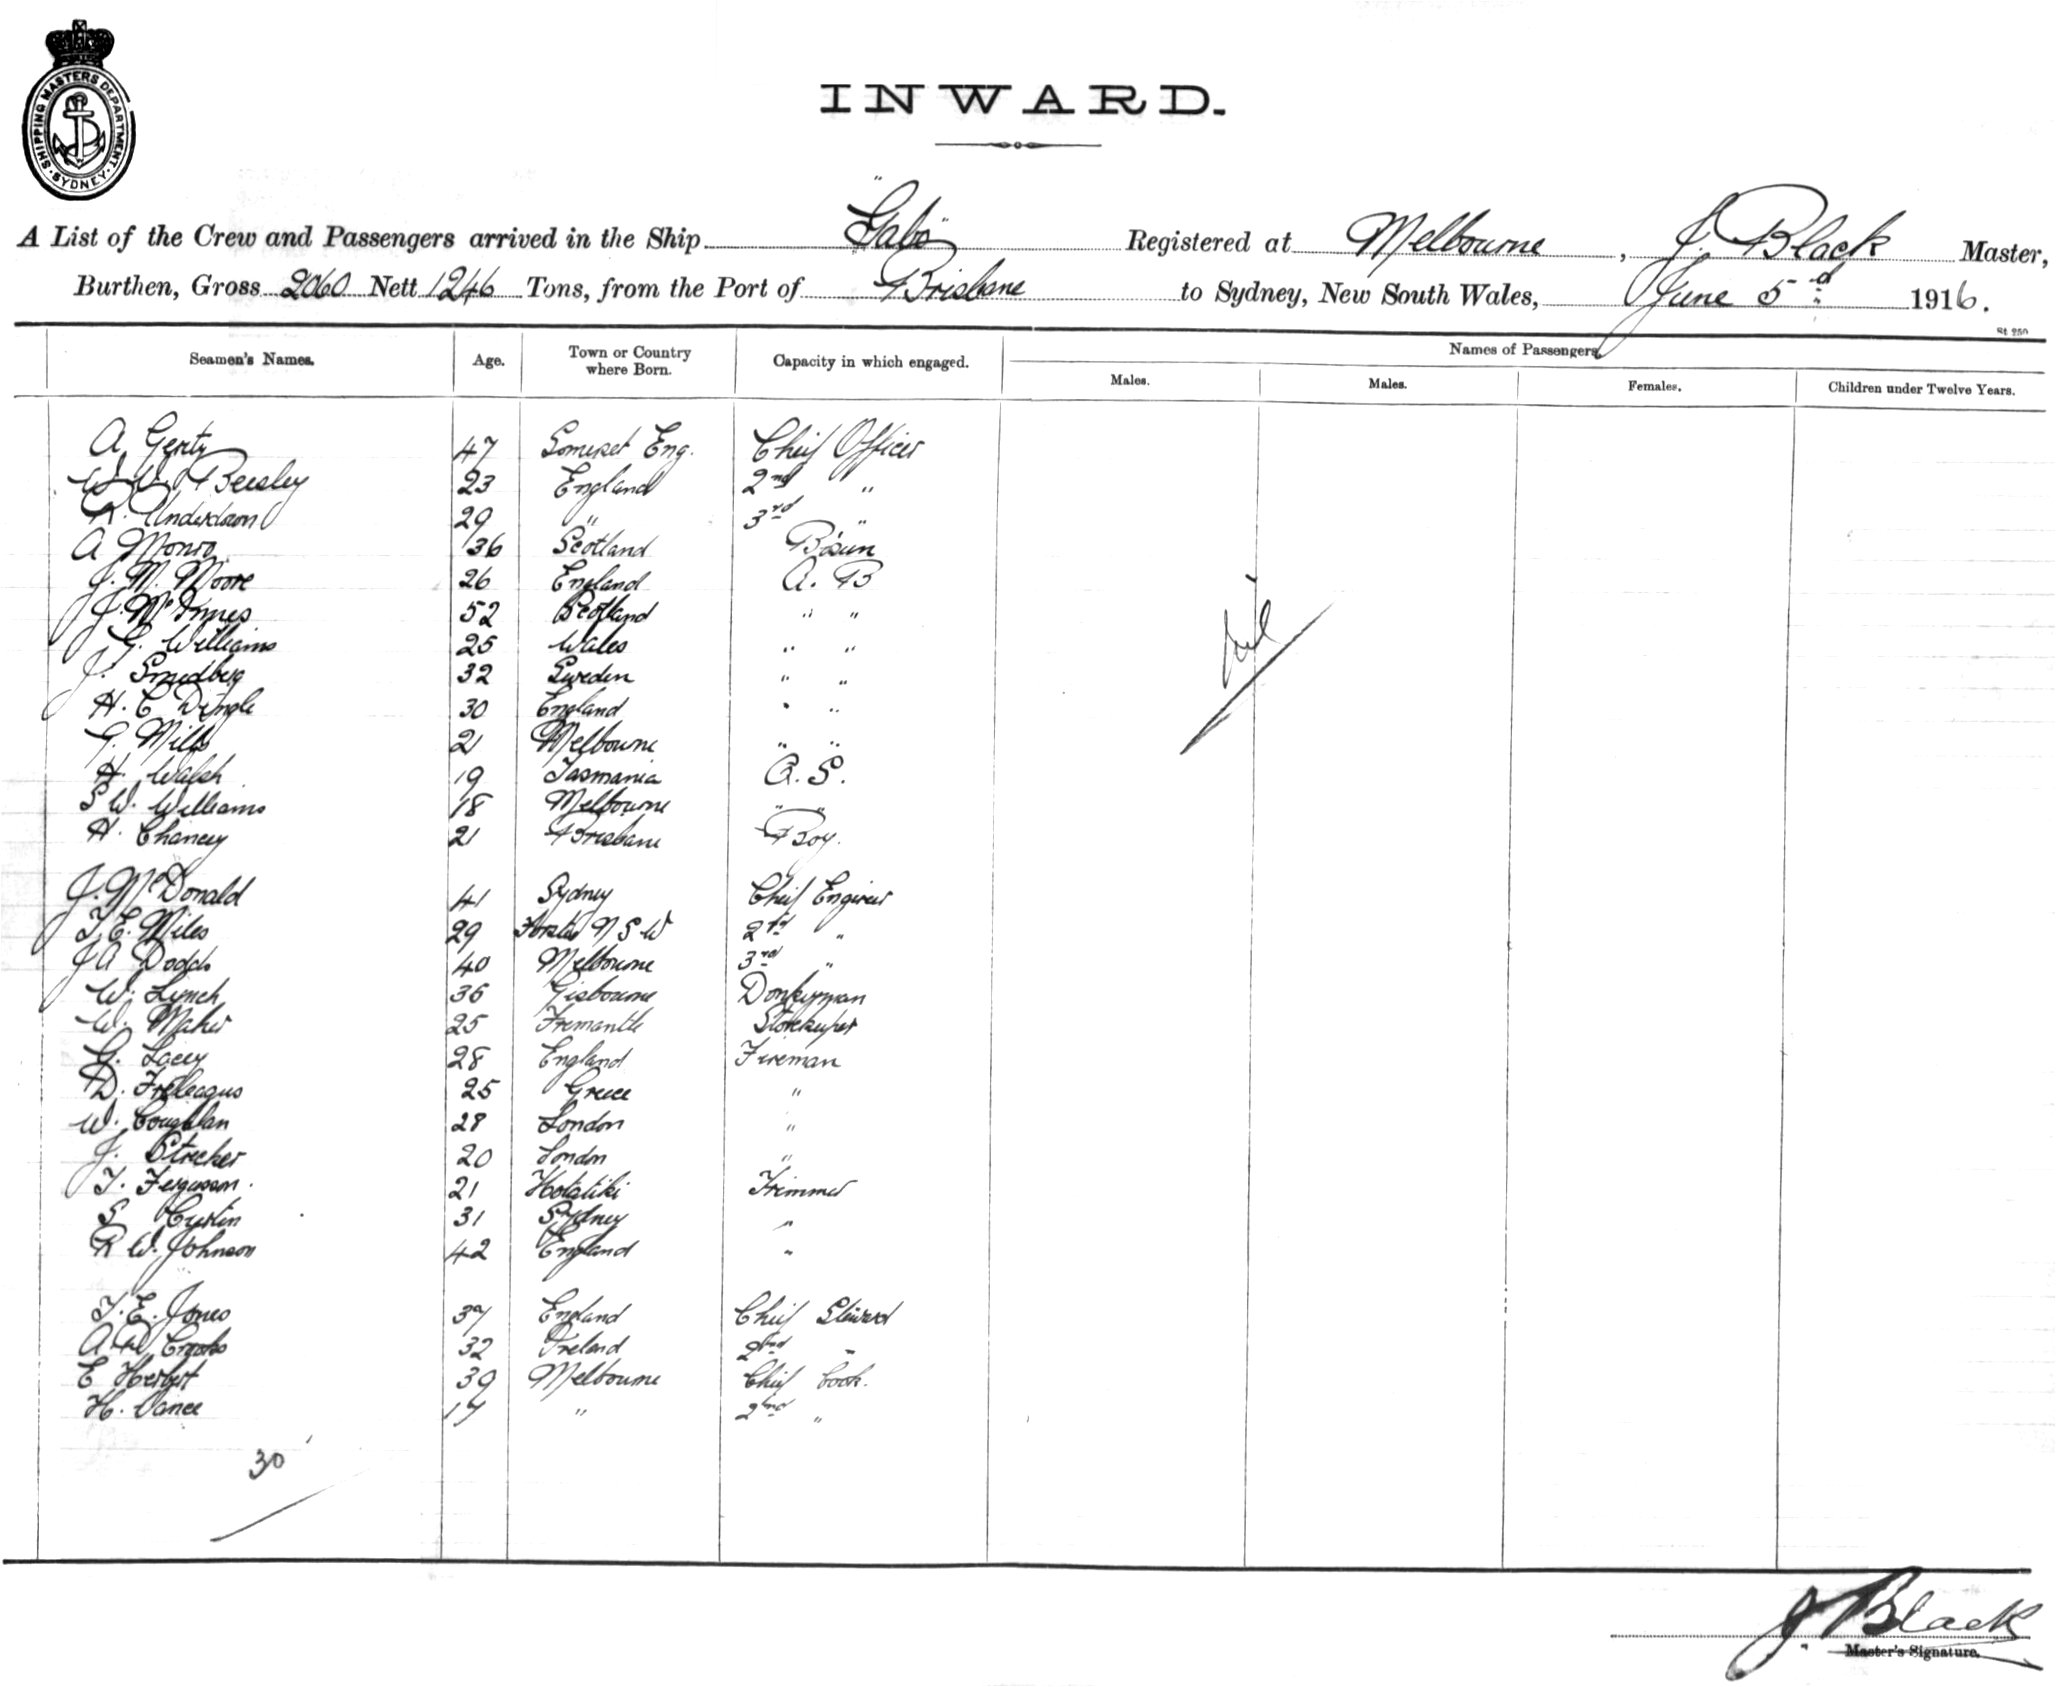 SHIPPING MASTERS DEPARTMENT. SYDNEY.
INWARD.
A List of the Crew and Passengers arrived in the Ship "Gabo" Registered at Melbourne, J. Black Master,
Burthen, Gross 2060 Nett 1246 Tons, from the Port of Brisbane to Sydney, New South Wales, June 5d 1916.
St 250
Seamen's Names. Age. Town or Country where Born. Capacity in which engaged. Names of Passengers.
Males. Males. Females. Children under Twelve Years.
A. Gerity 47 Somerset Eng. Chief Officer
W. W. Beesley 23 England 2nd "
R. Anderson 29 " 3rd "
A Monro 36 Scotland Bosun
J. M. Moore 26 England A. B
J. McInnes 52 Scotland " "
G. Williams 25 Wales " "
J. Smedberg 32 Sweden " "
H. C Dingle 30 England " "
G. Mills 21 Melbourne " "
H. Walsh 19 Tasmania O. S.
S W. Williams 18 Melbourne " "
H. Chancey 21 Brisbane Boy.
Nil
J. McDonald 41 Sydney Chief Engineer
T. E. Miles 29 Forster N S W 2nd "
J A Dodds 40 Melbourne 3rd "
W. Lynch 36 Gisbourne Donkeyman
W. Maher 25 Fremantle Storekeeper
G. Lacey 28 England Fireman
D. Freleagus 25 Greece "
W. Coughlan 28 London "
J. Strecker 20 London "
T. Fergusson. 21 Hokitiki Trimmer
S Curtin 31 Sydney "
R W. Johnson 42 England "
T. E. Jones 37 England Chief Steward
A W Crooks 32 Ireland 2nd "
E Herbert 39 Melbourne Chief Cook.
H. Vance 17 " 2nd "
30
J Black
Master's Signature.